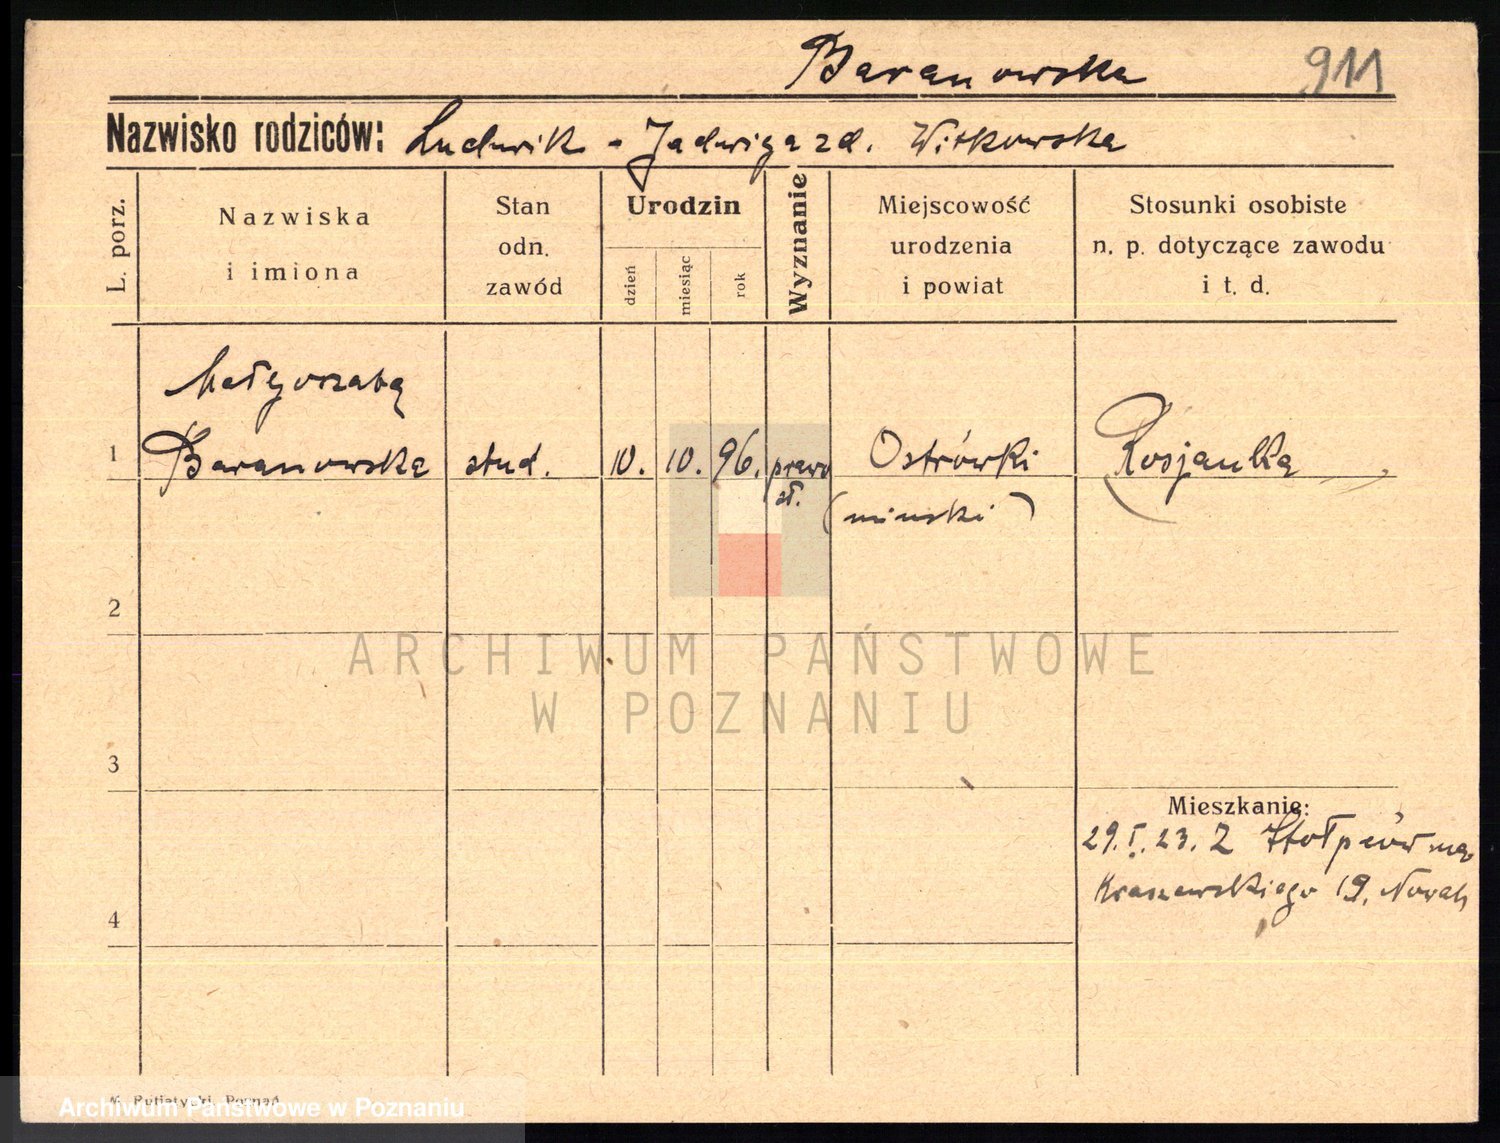 Baranowska 911
Nazwisko rodziców: Ludwik - Jadwiga zd. Witkowska
L. porz.
Nazwiska
i imiona
Stan
odn.
zawód
Urodzin
dzień
miesiąc
rok
Wyznanie
Miejscowość
urodzenia
i powiat
Stosunki osobiste
n. p. dotyczące zawodu
i t. d.
Małgorzata
1 Baranowska stud. 10. 10. 96. prawo Ostrówki Rosjanka
sł. (minski)
2
ARCHIWUM PAŃSTWOWE
W POZNANIU
3
Mieszkanie:
29.I.23. Z
Kraszewskiego 19, Nowak
4
Putiatycki, Poznań
Archiwum Państwowe w Poznaniu